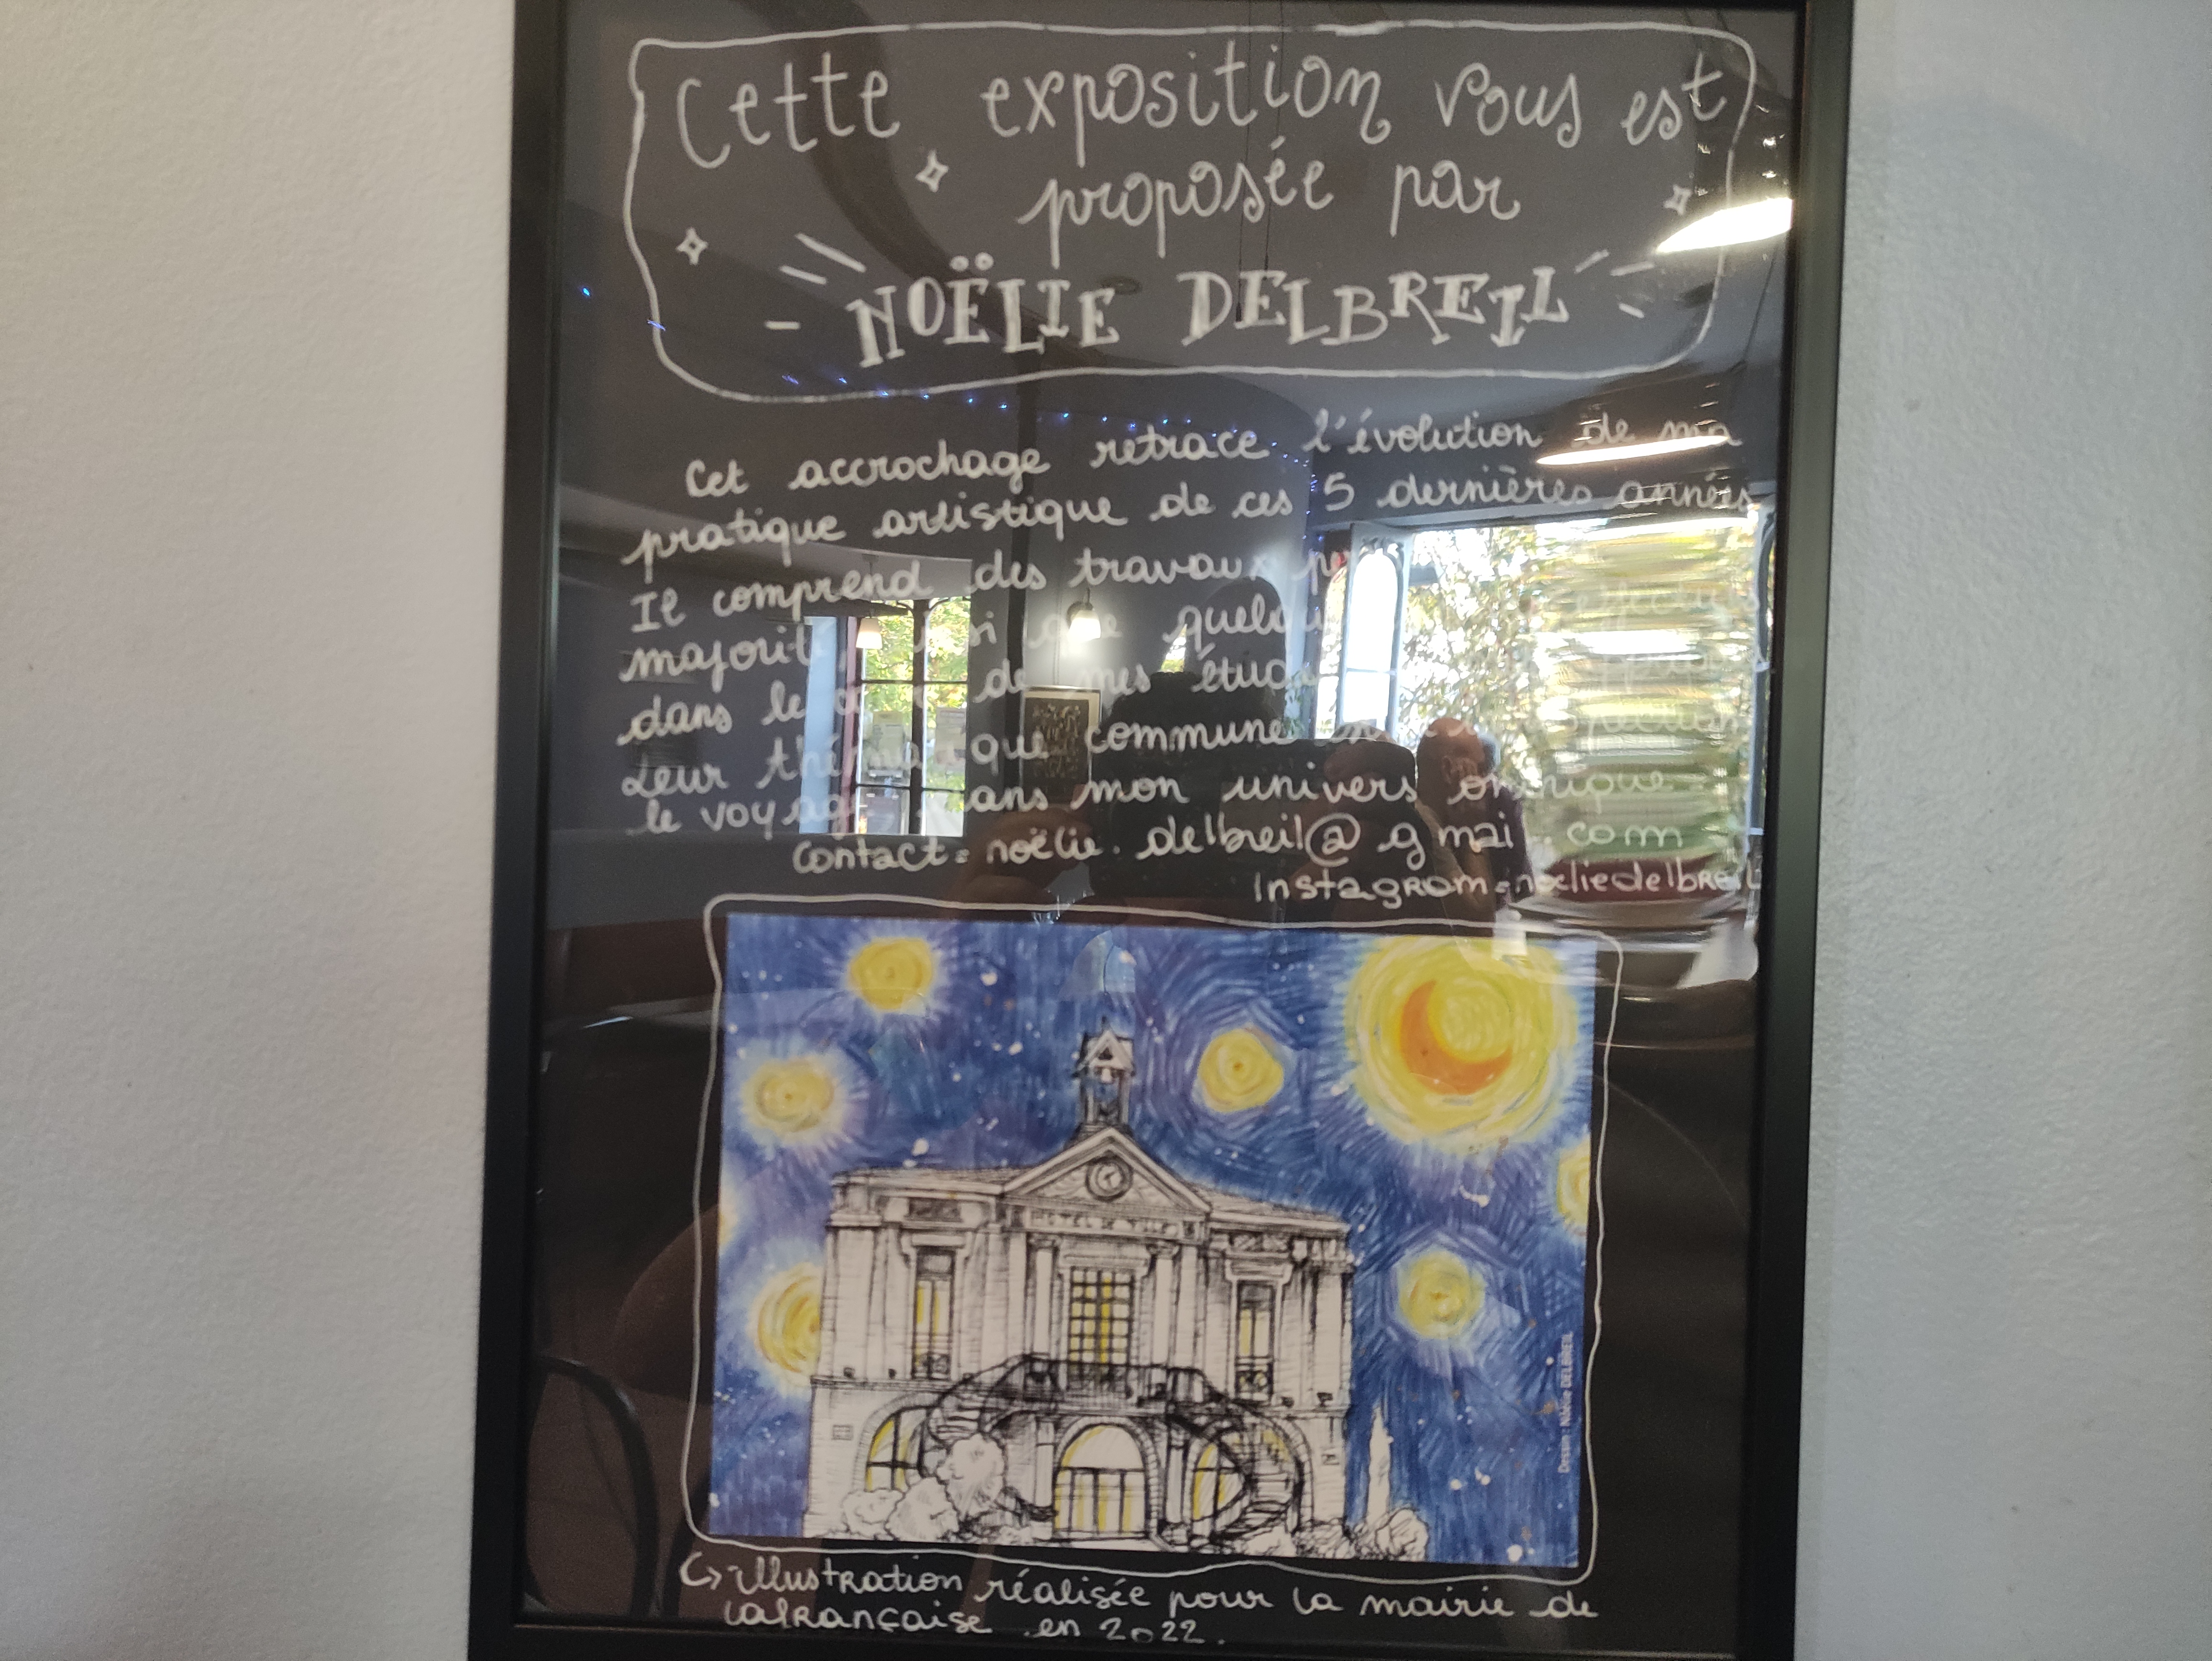 Cette exposition vous est
proposée par
NOËLIE DELBREIL
Cet accrochage retrace l'évolution de ma
pratique artistique de ces 5 dernières années
Il comprend des travaux
majorité
dans le de mes
Leur commune
le voyage dans mon univers onirique
contact = noëlie.delbreil@gmai .com
Instagram = noeliedelbreil
HOTEL DE VILLE
Dessin : Noëlie DELBREIL
↪ illustration réalisée pour la mairie de
Lafrançaise en 2022.